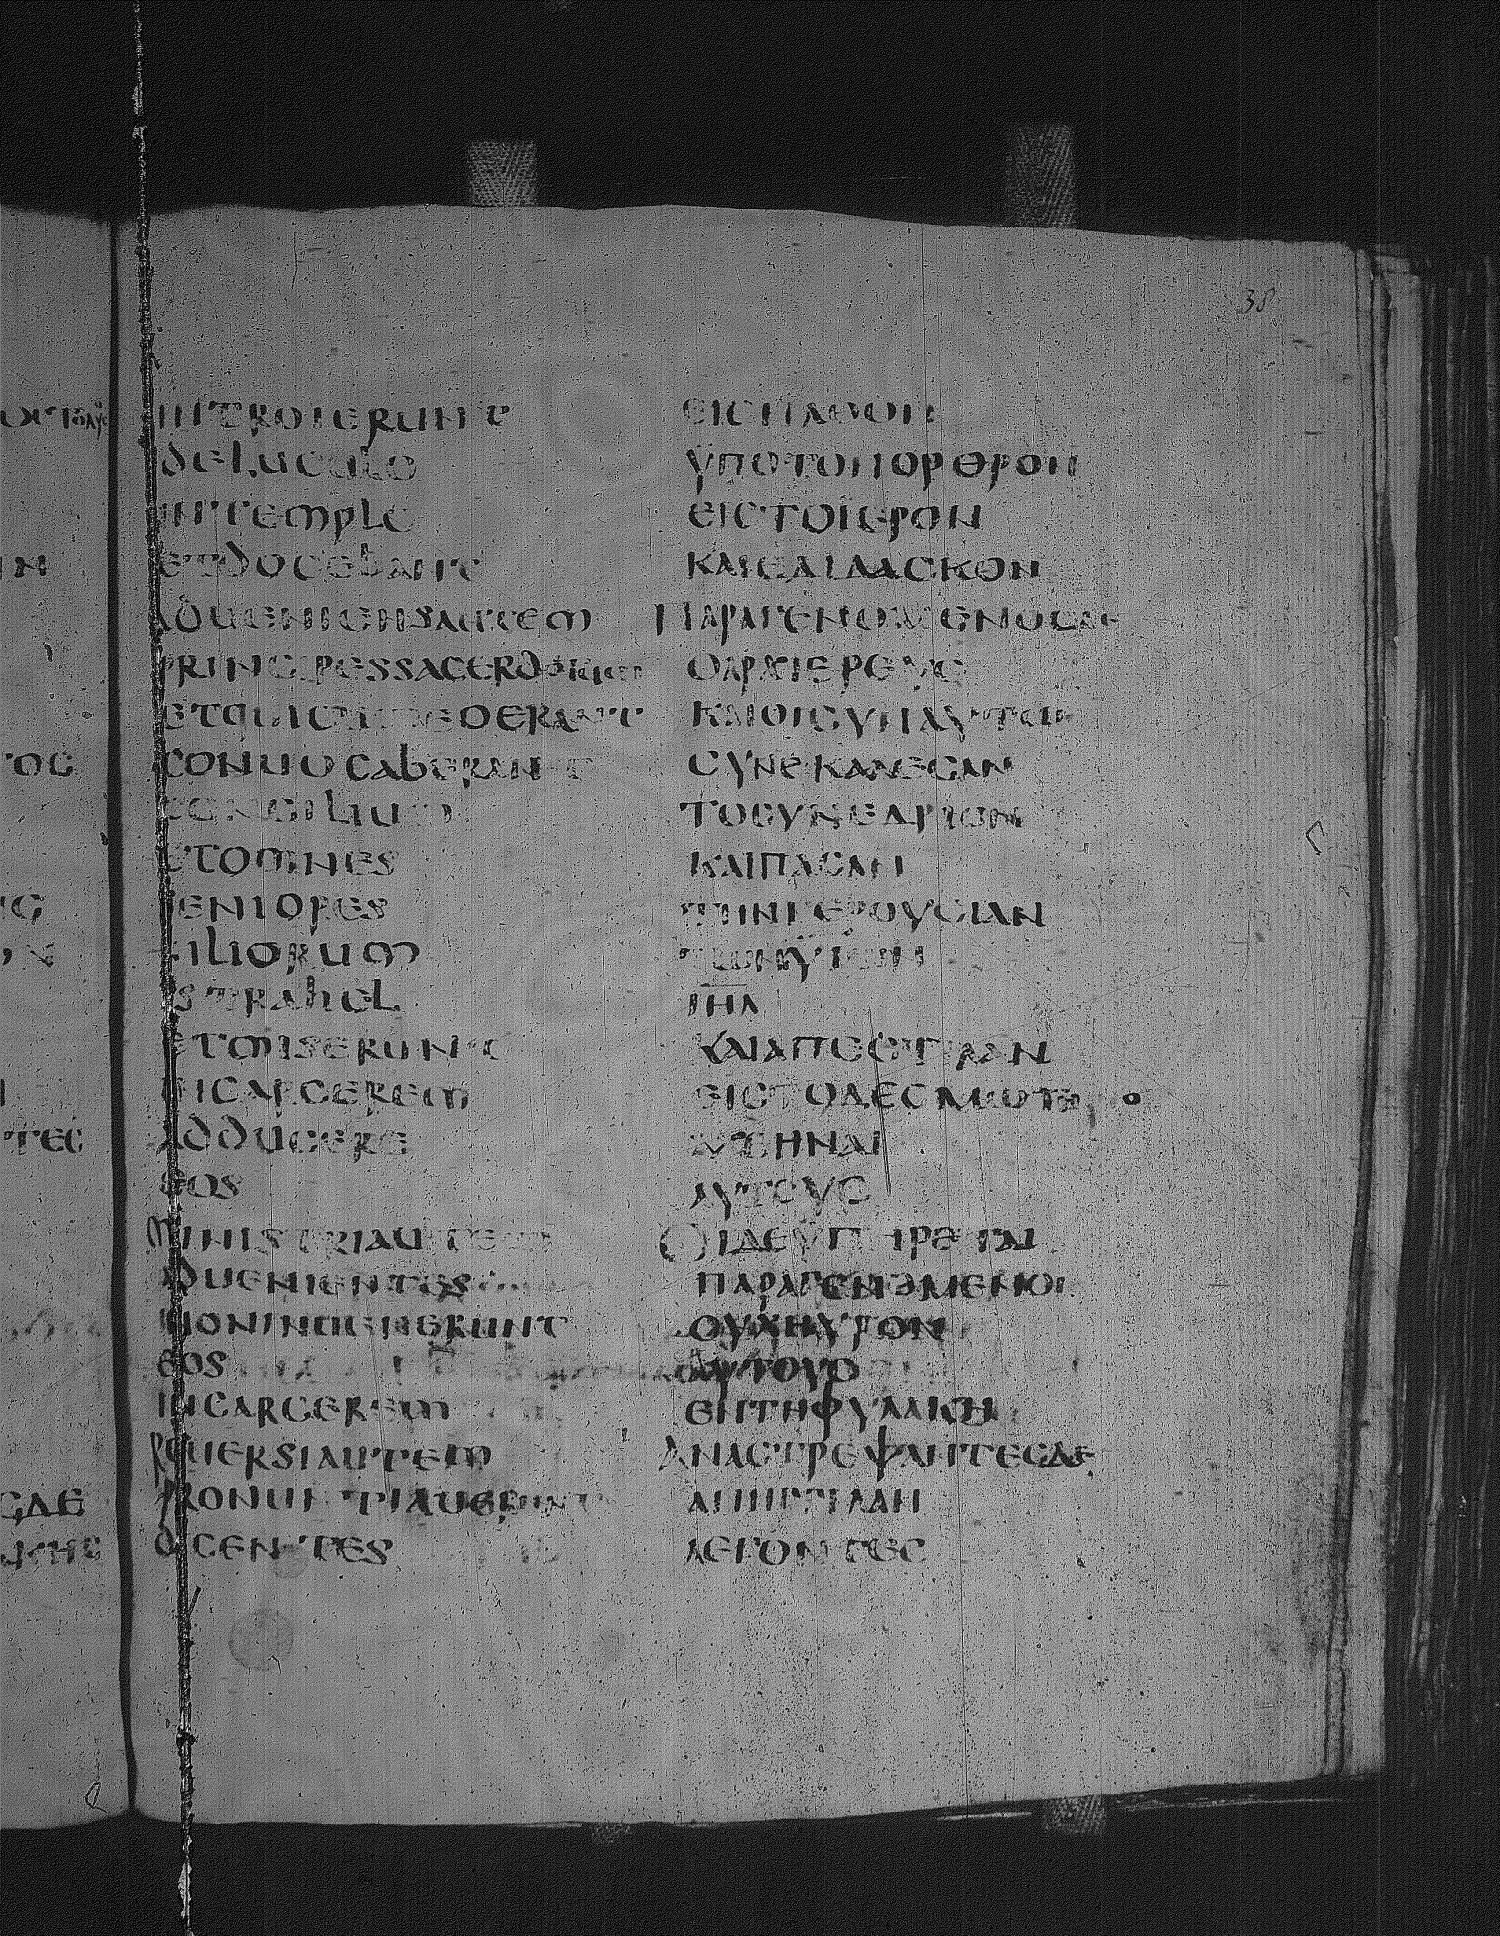 38
INTROIERUNT
DELUCULO
INTEMPLO
ETDOCEBANT
ADUENIENSAUTEM
PRINCEPESSACERDOTUM
ETQUICUMEOERANT
CONUOCABERUNT
CONCILIUM
ETOMNES
SENIORES
FILIORUM
ISTRAHEL
ETMISERUNT
INCARCEREM
ADDUCERE
EOS
MINISTRIAUTEM
ADUENIENTES
NONINUENERUNT
EOS
INCARCEREM
REUERSIAUTEM
PRONUNTIAUERUNT
DICENTES
ΕΙCΗΛΘΟΝ
ΥΠΟΤΟΝΟΡΘΡΟΝ
ΕΙCΤΟΙΕΡΟΝ
ΚΑΙΕΔΙΔΑCΚΟΝ
ΠΑΡΑΓΕΝΟΜΕΝΟCΔΕ
ΟΑΡΧΙΕΡΕΥC
ΚΑΙΟΙCΥΝΑΥΤΩ
CΥΝΕΚΑΛΕCΑΝ
ΤΟCΥΝΕΔΡΙΟΝ
ΚΑΙΠΑCΑΝ
ΤΗΝΓΕΡΟΥCΙΑΝ
ΤΩΝΥΙΩΝ
ΙΗΛ
ΚΑΙΑΠΕCΤΙΛΑΝ
ΕΙCΤΟΔΕCΜΩΤΗ
ΑΧΘΗΝΑΙ
ΑΥΤΟΥC
ΟΙΔΕΥΠΗΡΕΤΑΙ
ΠΑΡΑΓΕΝΟΜΕΝΟΙ
ΟΥΧΗΥΡΟΝ
ΑΥΤΟΥC
ΕΝΤΗΦΥΛΑΚΗ
ΑΝΑCΤΡΕΨΑΝΤΕCΔΕ
ΑΠΗΓΓΙΛΑΝ
ΛΕΓΟΝΤΕC